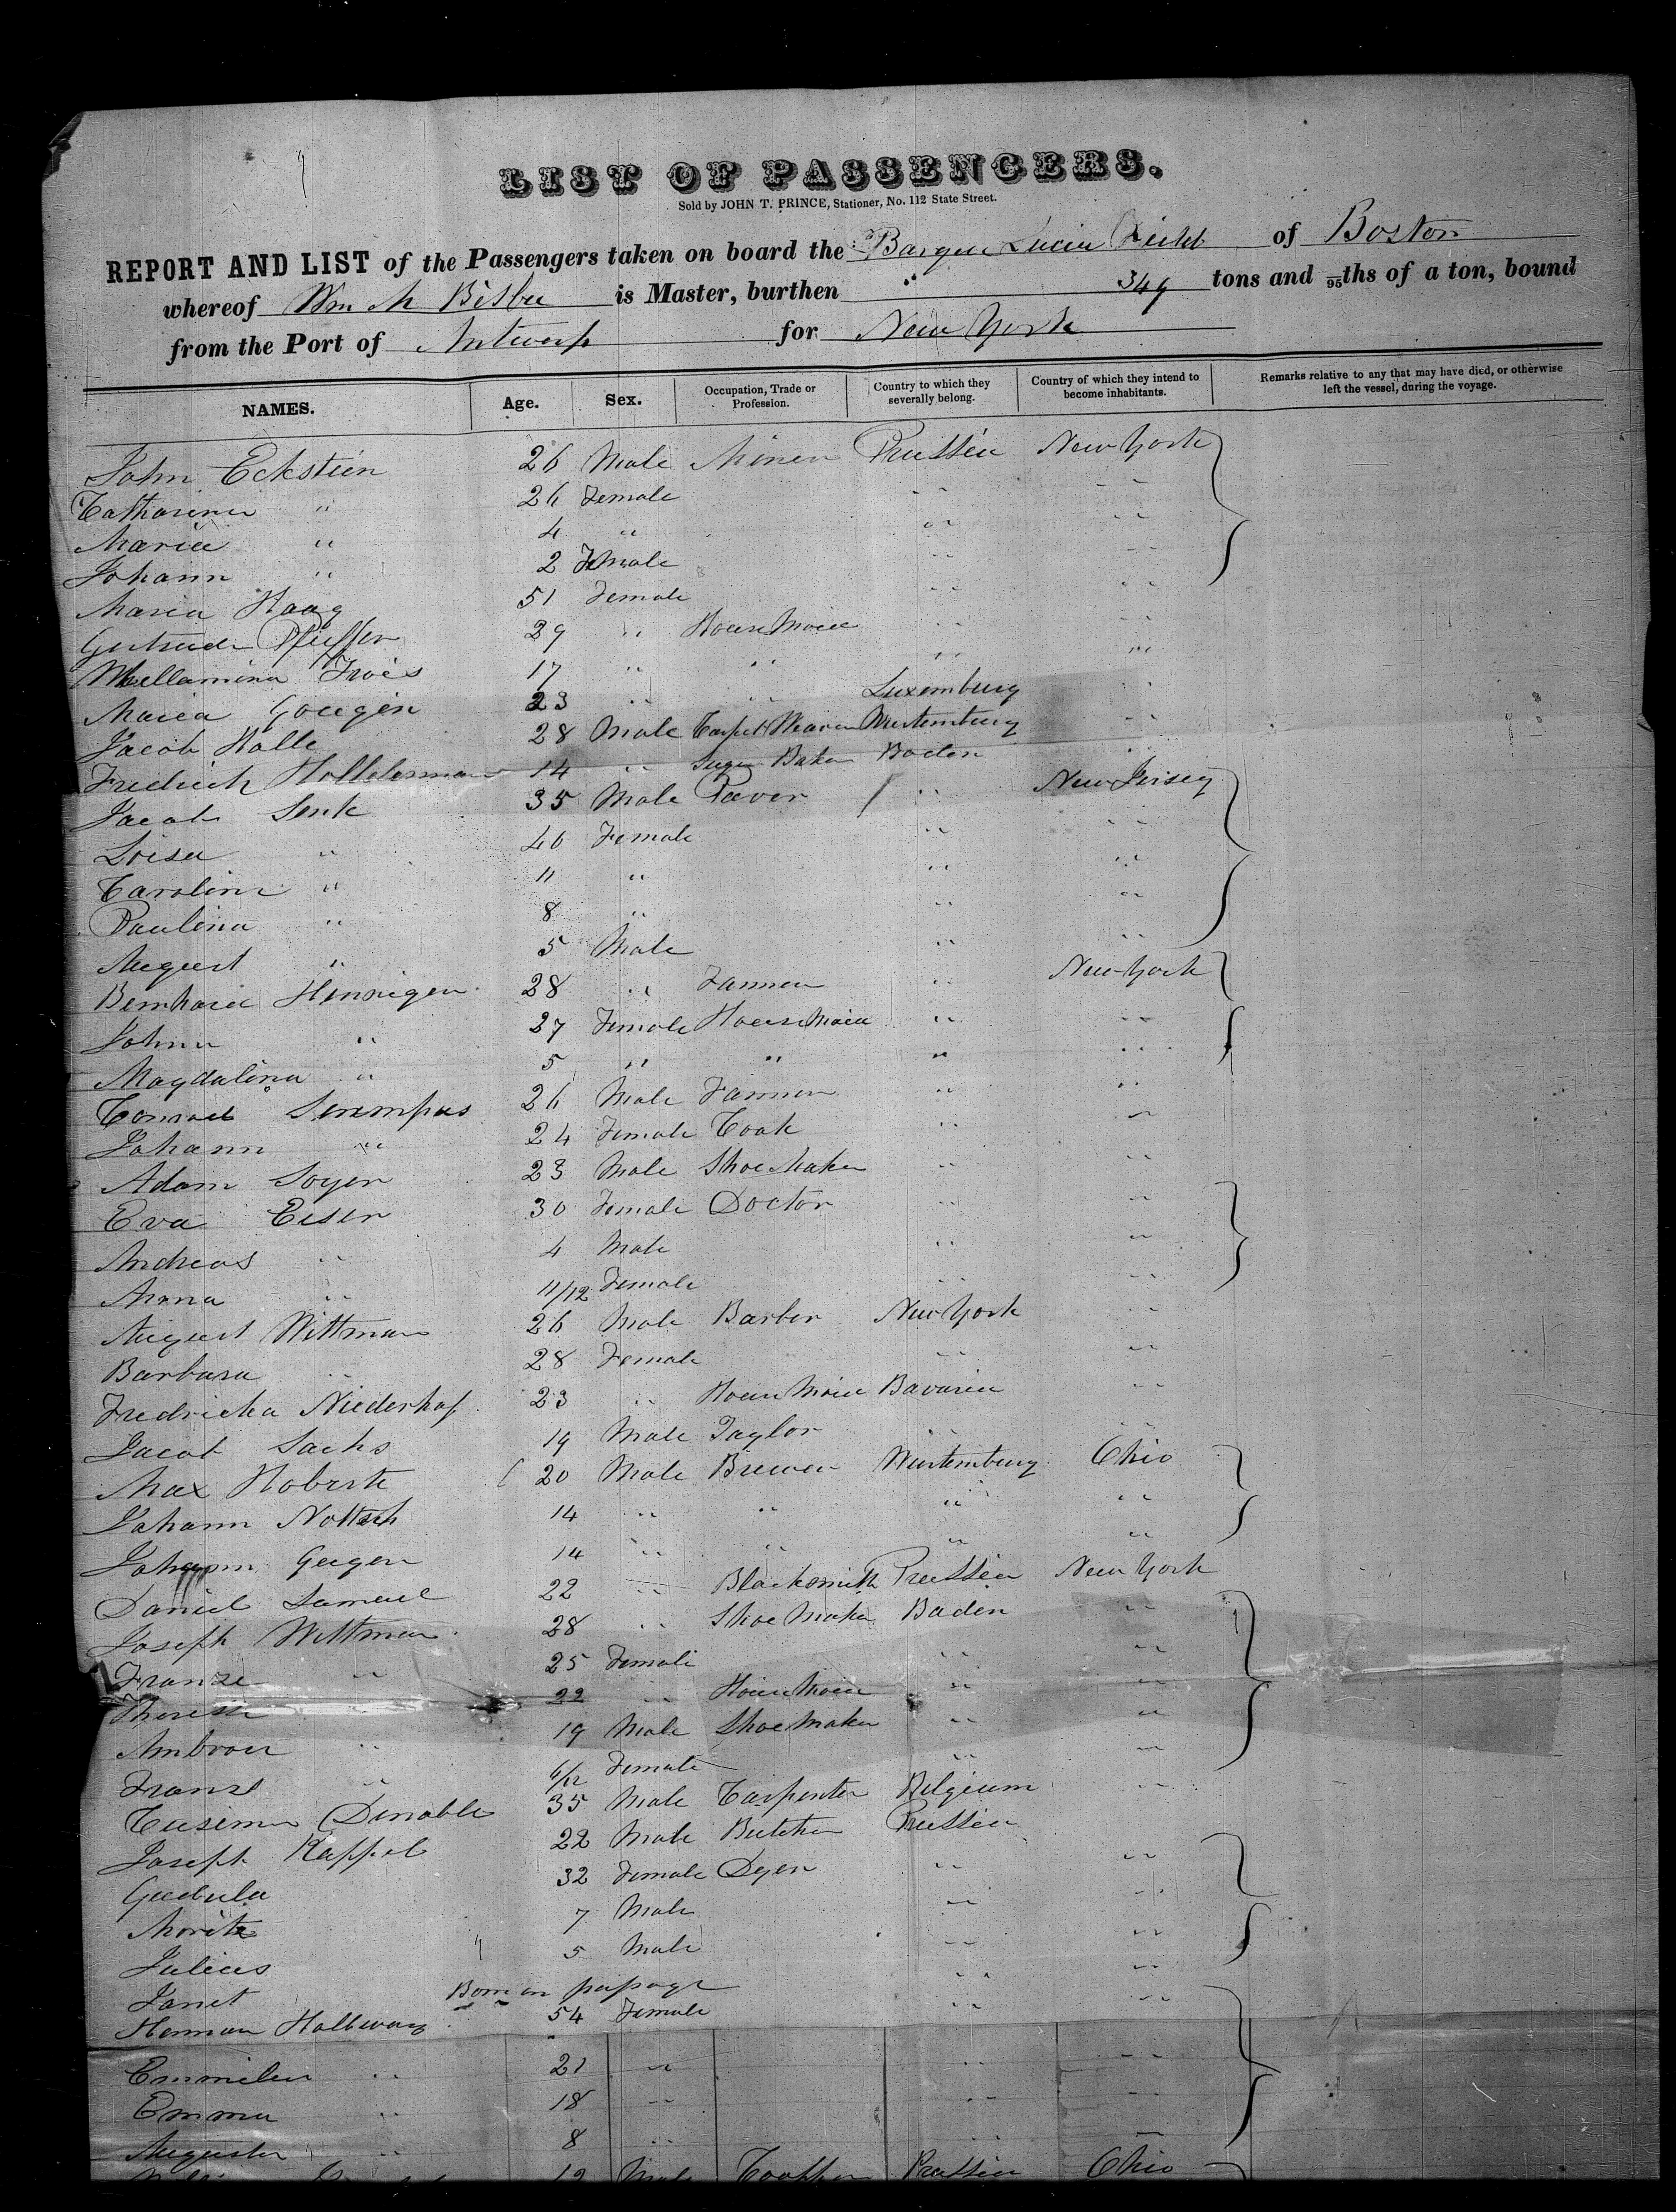 LIST OF PASSENGERS.
Sold by JOHN T. PRINCE, Stationer, No. 112 State Street.
REPORT AND LIST of the Passengers taken on board the Barque Lucia Field of Boston
whereof Wm M Bisbee is Master, burthen " 349 tons and 95ths of a ton, bound
from the Port of Antwerp for New York
NAMES. Age. Sex. Occupation, Trade or Profession. Country to which they severally belong. Country of which they intend to become inhabitants. Remarks relative to any that may have died, or otherwise left the vessel, during the voyage.
John Eckstein 26 Male Miner Prussia New York
Catharina " 26 Female " "
Maria " 4 " " "
Johann " 2 Male " "
Maria Haag 51 Female " "
Gertrude Pfieffer 29 " House Maid " "
Whellamina Frois 17 " " " "
Maria Gougin 23 " " Luxemburg "
Jacob Halle 28 Male Carpet Weaver Wurtemburg "
Fredrich Holleterman 14 " Sugar Baker Baden "
Jacob Senk 35 Male Paver " New Jersey
Loisa " 40 Female " "
Carolina " 11 " " "
Paulina " 8 " " "
August " 5 Male " "
Bernhard Hennigen 28 " Farmer " New York
Johna " 27 Female House Maid " "
Magdalina " 5 " " " "
Conrad 26 Male Farmer " "
Johann " 24 Female Cook " "
Adam Soyer 23 Male Shoe Maker " "
Eva Eiser 30 Female Doctor " "
Andreas " 4 Male " "
Anna " 11/12 Female " "
August Wittman 26 Male Barber New York "
Barbara " 28 Female " "
Fredricka Niederhof 23 " House Maid Bavaria "
Jacob Sachs 19 Male Taylor " "
Max Hoberte 20 Male Brewer Wurtemburg Ohio
Johann 14 " " " "
Johann Geigen 14 " " " "
Daniel Samuel 22 " Blacksmith Prussia New York
Joseph Wittman 28 " Shoe Maker Baden "
Franze " 25 Female " "
Theresa " 22 " House Maid " "
Ambrou " 19 Male Shoe Maker " "
Franze " 6/12 Female " "
Dinoble 35 Male Carpenter Belgium "
Joseph Kappel 22 Male Butcher Prussia
Gudula 32 Female Dyer " "
Moritz 7 Male " "
Julius 5 Male " "
Janet Born on passage " "
Herman Hallwarz 54 Female " "
Emmilia " 21 " " "
Emma " 18 " " "
Augusta " 8 " " "
12 Male Prussia Ohio